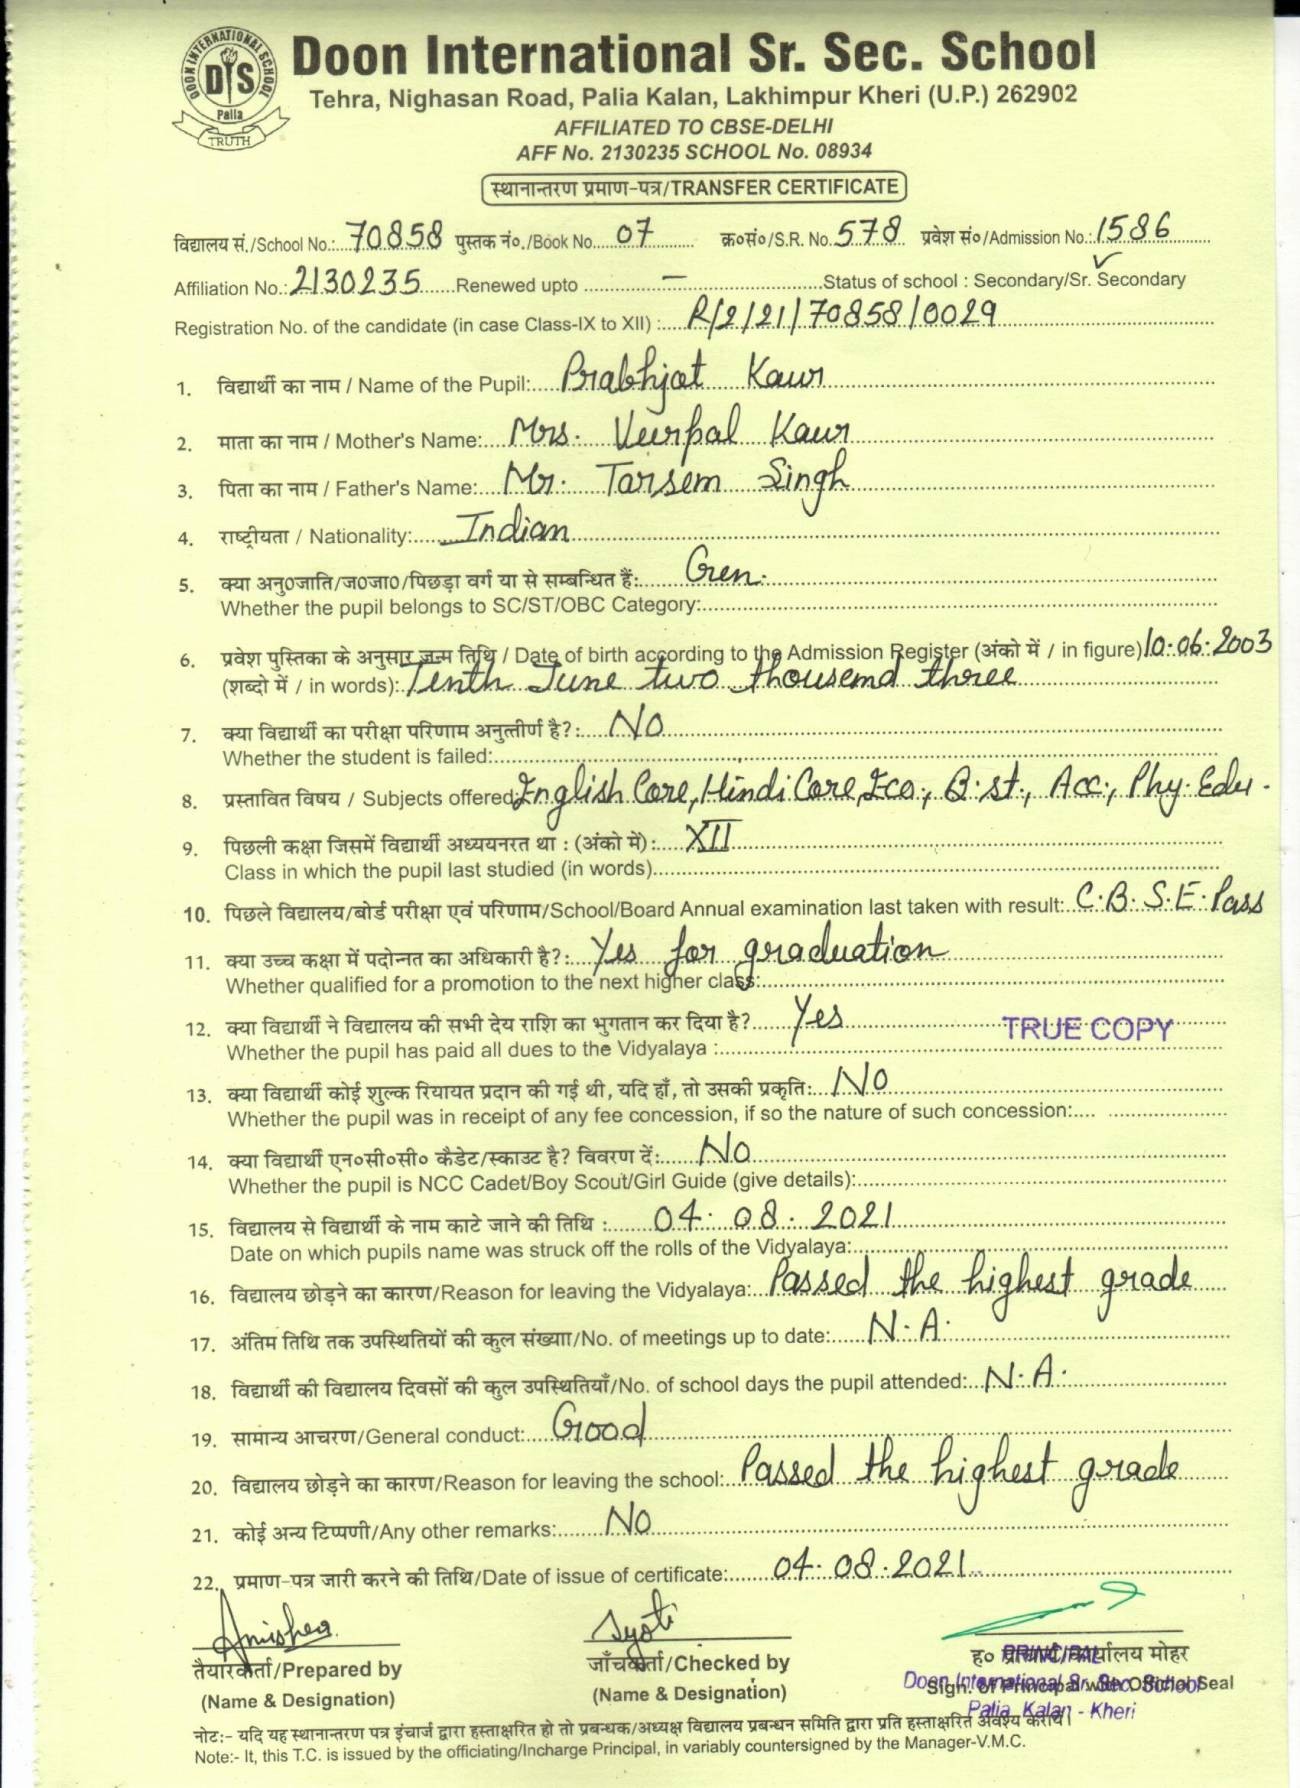 DOON INTERNATIONAL SCHOOL
DIS
Palia
TRUTH
Doon International Sr. Sec. School
Tehra, Nighasan Road, Palia Kalan, Lakhimpur Kheri (U.P.) 262902
AFFILIATED TO CBSE-DELHI
AFF No. 2130235 SCHOOL No. 08934
स्थानान्तरण प्रमाण-पत्र/TRANSFER CERTIFICATE
विद्यालय सं./School No.: 70858 पुस्तक नं०./Book No. 07 क्र०सं०/S.R. No. 578 प्रवेश सं०/Admission No.: 1586
Affiliation No.: 2130235 Renewed upto — Status of school : Secondary/Sr. Secondary ✓
Registration No. of the candidate (in case Class-IX to XII) : R/2/21/70858/0029
1. विद्यार्थी का नाम / Name of the Pupil: Prabhjot Kaur
2. माता का नाम / Mother's Name: Mrs. Veerpal Kaur
3. पिता का नाम / Father's Name: Mr. Tarsem Singh
4. राष्ट्रीयता / Nationality: Indian
5. क्या अनु0जाति/ज0जा0/पिछड़ा वर्ग या से सम्बन्धित हैं: Gen.
Whether the pupil belongs to SC/ST/OBC Category:
6. प्रवेश पुस्तिका के अनुसार जन्म तिथि / Date of birth according to the Admission Register (अंको में / in figure) 10.06.2003
(शब्दो में / in words): Tenth June two thousend three
7. क्या विद्यार्थी का परीक्षा परिणाम अनुत्तीर्ण है?: No
Whether the student is failed:
8. प्रस्तावित विषय / Subjects offered: English Core, Hindi Core, Eco., B.st., Acc., Phy. Edu.
9. पिछली कक्षा जिसमें विद्यार्थी अध्ययनरत था : (अंको में) : XII
Class in which the pupil last studied (in words)
10. पिछले विद्यालय/बोर्ड परीक्षा एवं परिणाम/School/Board Annual examination last taken with result: C.B.S.E. Pass
11. क्या उच्च कक्षा में पदोन्नत का अधिकारी है?: Yes for graduation
Whether qualified for a promotion to the next higher class:
12. क्या विद्यार्थी ने विद्यालय की सभी देय राशि का भुगतान कर दिया है? Yes TRUE COPY
Whether the pupil has paid all dues to the Vidyalaya :
13. क्या विद्यार्थी कोई शुल्क रियायत प्रदान की गई थी, यदि हाँ, तो उसकी प्रकृति: No
Whether the pupil was in receipt of any fee concession, if so the nature of such concession:
14. क्या विद्यार्थी एन०सी०सी० कैडेट/स्काउट है? विवरण दें: No
Whether the pupil is NCC Cadet/Boy Scout/Girl Guide (give details):
15. विद्यालय से विद्यार्थी के नाम काटे जाने की तिथि : 04.08.2021
Date on which pupils name was struck off the rolls of the Vidyalaya:
16. विद्यालय छोड़ने का कारण/Reason for leaving the Vidyalaya: Passed the highest grade
17. अंतिम तिथि तक उपस्थितियों की कुल संख्या/No. of meetings up to date: N.A.
18. विद्यार्थी की विद्यालय दिवसों की कुल उपस्थितियाँ/No. of school days the pupil attended: N.A.
19. सामान्य आचरण/General conduct: Good
20. विद्यालय छोड़ने का कारण/Reason for leaving the school: Passed the highest grade
21. कोई अन्य टिप्पणी/Any other remarks: No
22. प्रमाण-पत्र जारी करने की तिथि/Date of issue of certificate: 04.08.2021
Jyoti
तैयारकर्ता/Prepared by जाँचकर्ता/Checked by ह० प्राचार्य/कार्यालय मोहर
PRINCIPAL
(Name & Designation) (Name & Designation) Sign. of Principal with Official Seal
Doon International Sr. Sec. School
Palia Kalan - Kheri
नोटः- यदि यह स्थानान्तरण पत्र इंचार्ज द्वारा हस्ताक्षरित हो तो प्रबन्धक/अध्यक्ष विद्यालय प्रबन्धन समिति द्वारा प्रति हस्ताक्षरित अवश्य करायें।
Note:- It, this T.C. is issued by the officiating/Incharge Principal, in variably countersigned by the Manager-V.M.C.